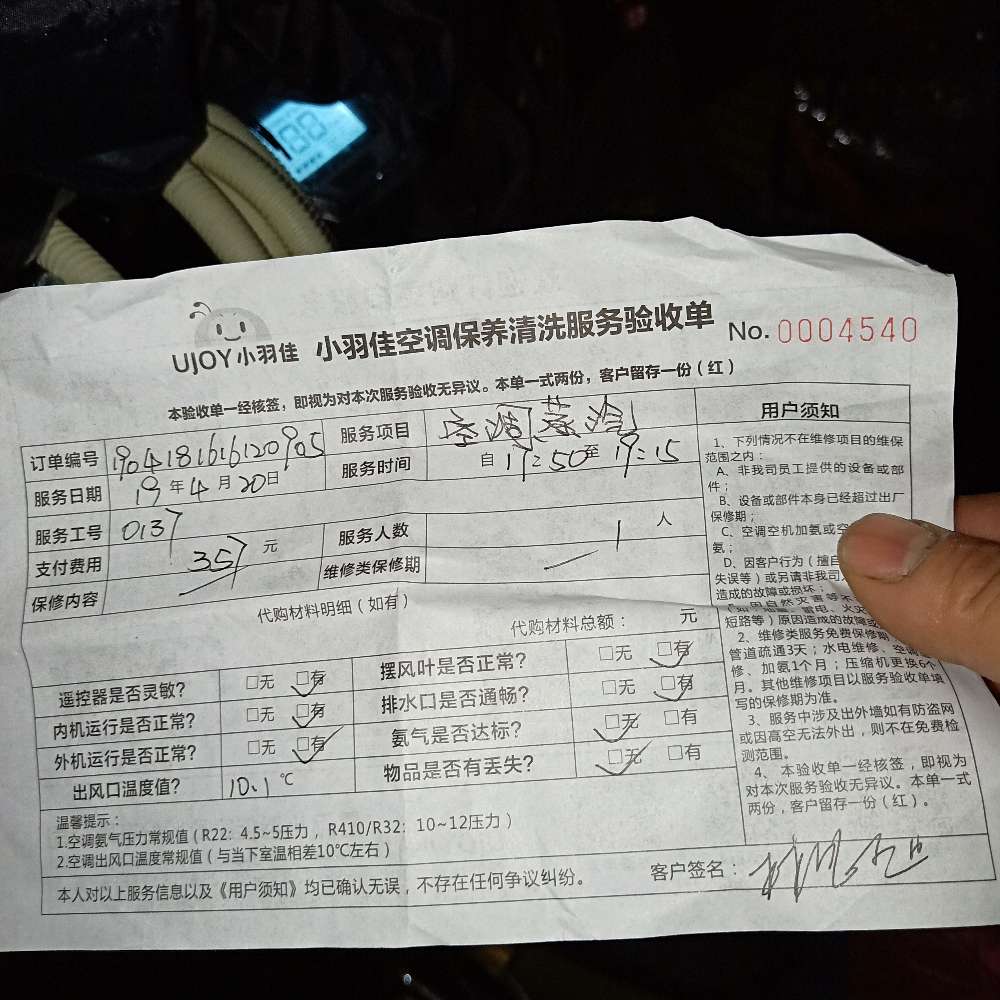 UJOY小羽佳 小羽佳空调保养清洗服务验收单 No. 0004540
本验收单一经核签，即视为对本次服务验收无异议。本单一式两份，客户留存一份（红）
订单编号 190418161612090S 服务项目
服务日期 19年4月20日 服务时间 自17:50至19:15
服务工号 0137 服务人数 1人
支付费用 357元 维修类保修期
保修内容
代购材料明细（如有）
代购材料总额： 元
遥控器是否灵敏？ □无 □有 摆风叶是否正常？ □无 □有
内机运行是否正常？ □无 □有 排水口是否通畅？ □无 □有
外机运行是否正常？ □无 □有 氨气是否达标？ □无 □有
出风口温度值？ 10.1℃ 物品是否有丢失？ □无 □有
温馨提示：
1.空调氨气压力常规值（R22：4.5~5压力，R410/R32：10~12压力）
2.空调出风口温度常规值（与当下室温相差10℃左右）
本人对以上服务信息以及《用户须知》均已确认无误，不存在任何争议纠纷。 客户签名：
用户须知
1、下列情况不在维修项目的维保
范围之内：
A、非我司员工提供的设备或部
件；
B、设备或部件本身已经超过出厂
保修期；
C、空调空机加氨或空
氨；
D、因客户行为（擅自
失误等）或另请非我司
造成的故障或损坏；
短路等）原因造成的故障或
2、维修类服务免费保修期
管道疏通3天；水电维修、空调
修、加氨1个月；压缩机更换6个
月。其他维修项目以服务验收单填
写的保修期为准。
3、服务中涉及出外墙如有防盗网
或因高空无法外出，则不在免费检
测范围。
4、本验收单一经核签，即视为
对本次服务验收无异议。本单一式
两份，客户留存一份（红）。